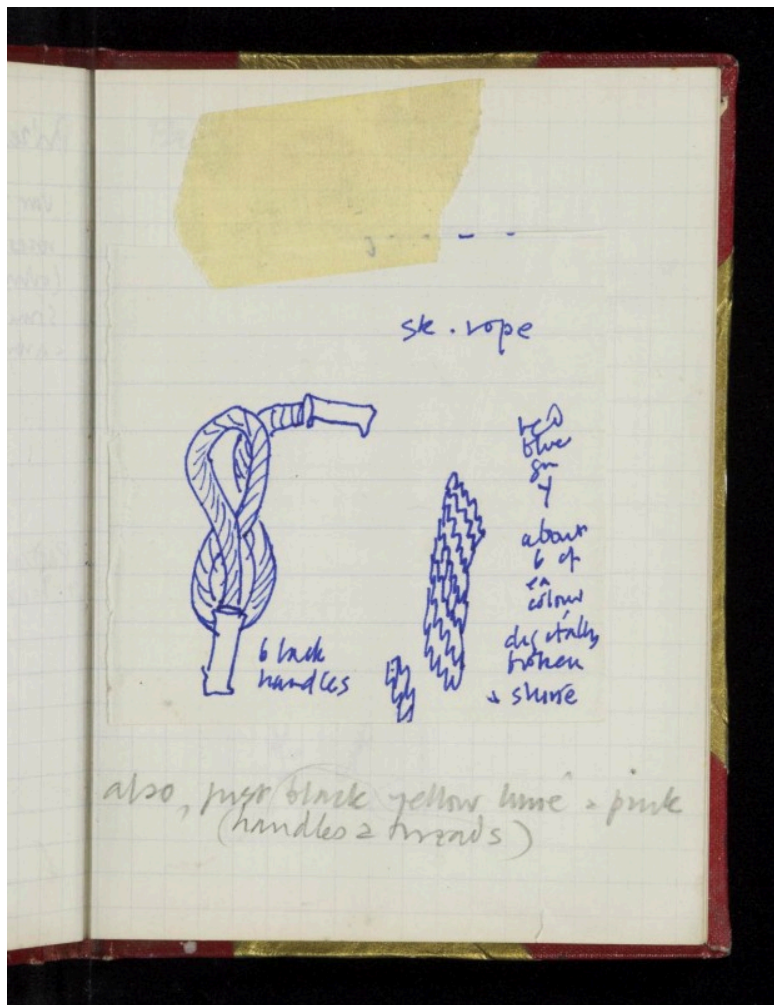 sk. rope
red
blue
gn
y
about
6 of
ea
colour
digitally
broken
+ shine
black
handles
also, just black yellow lime + pink
(handles + threads)